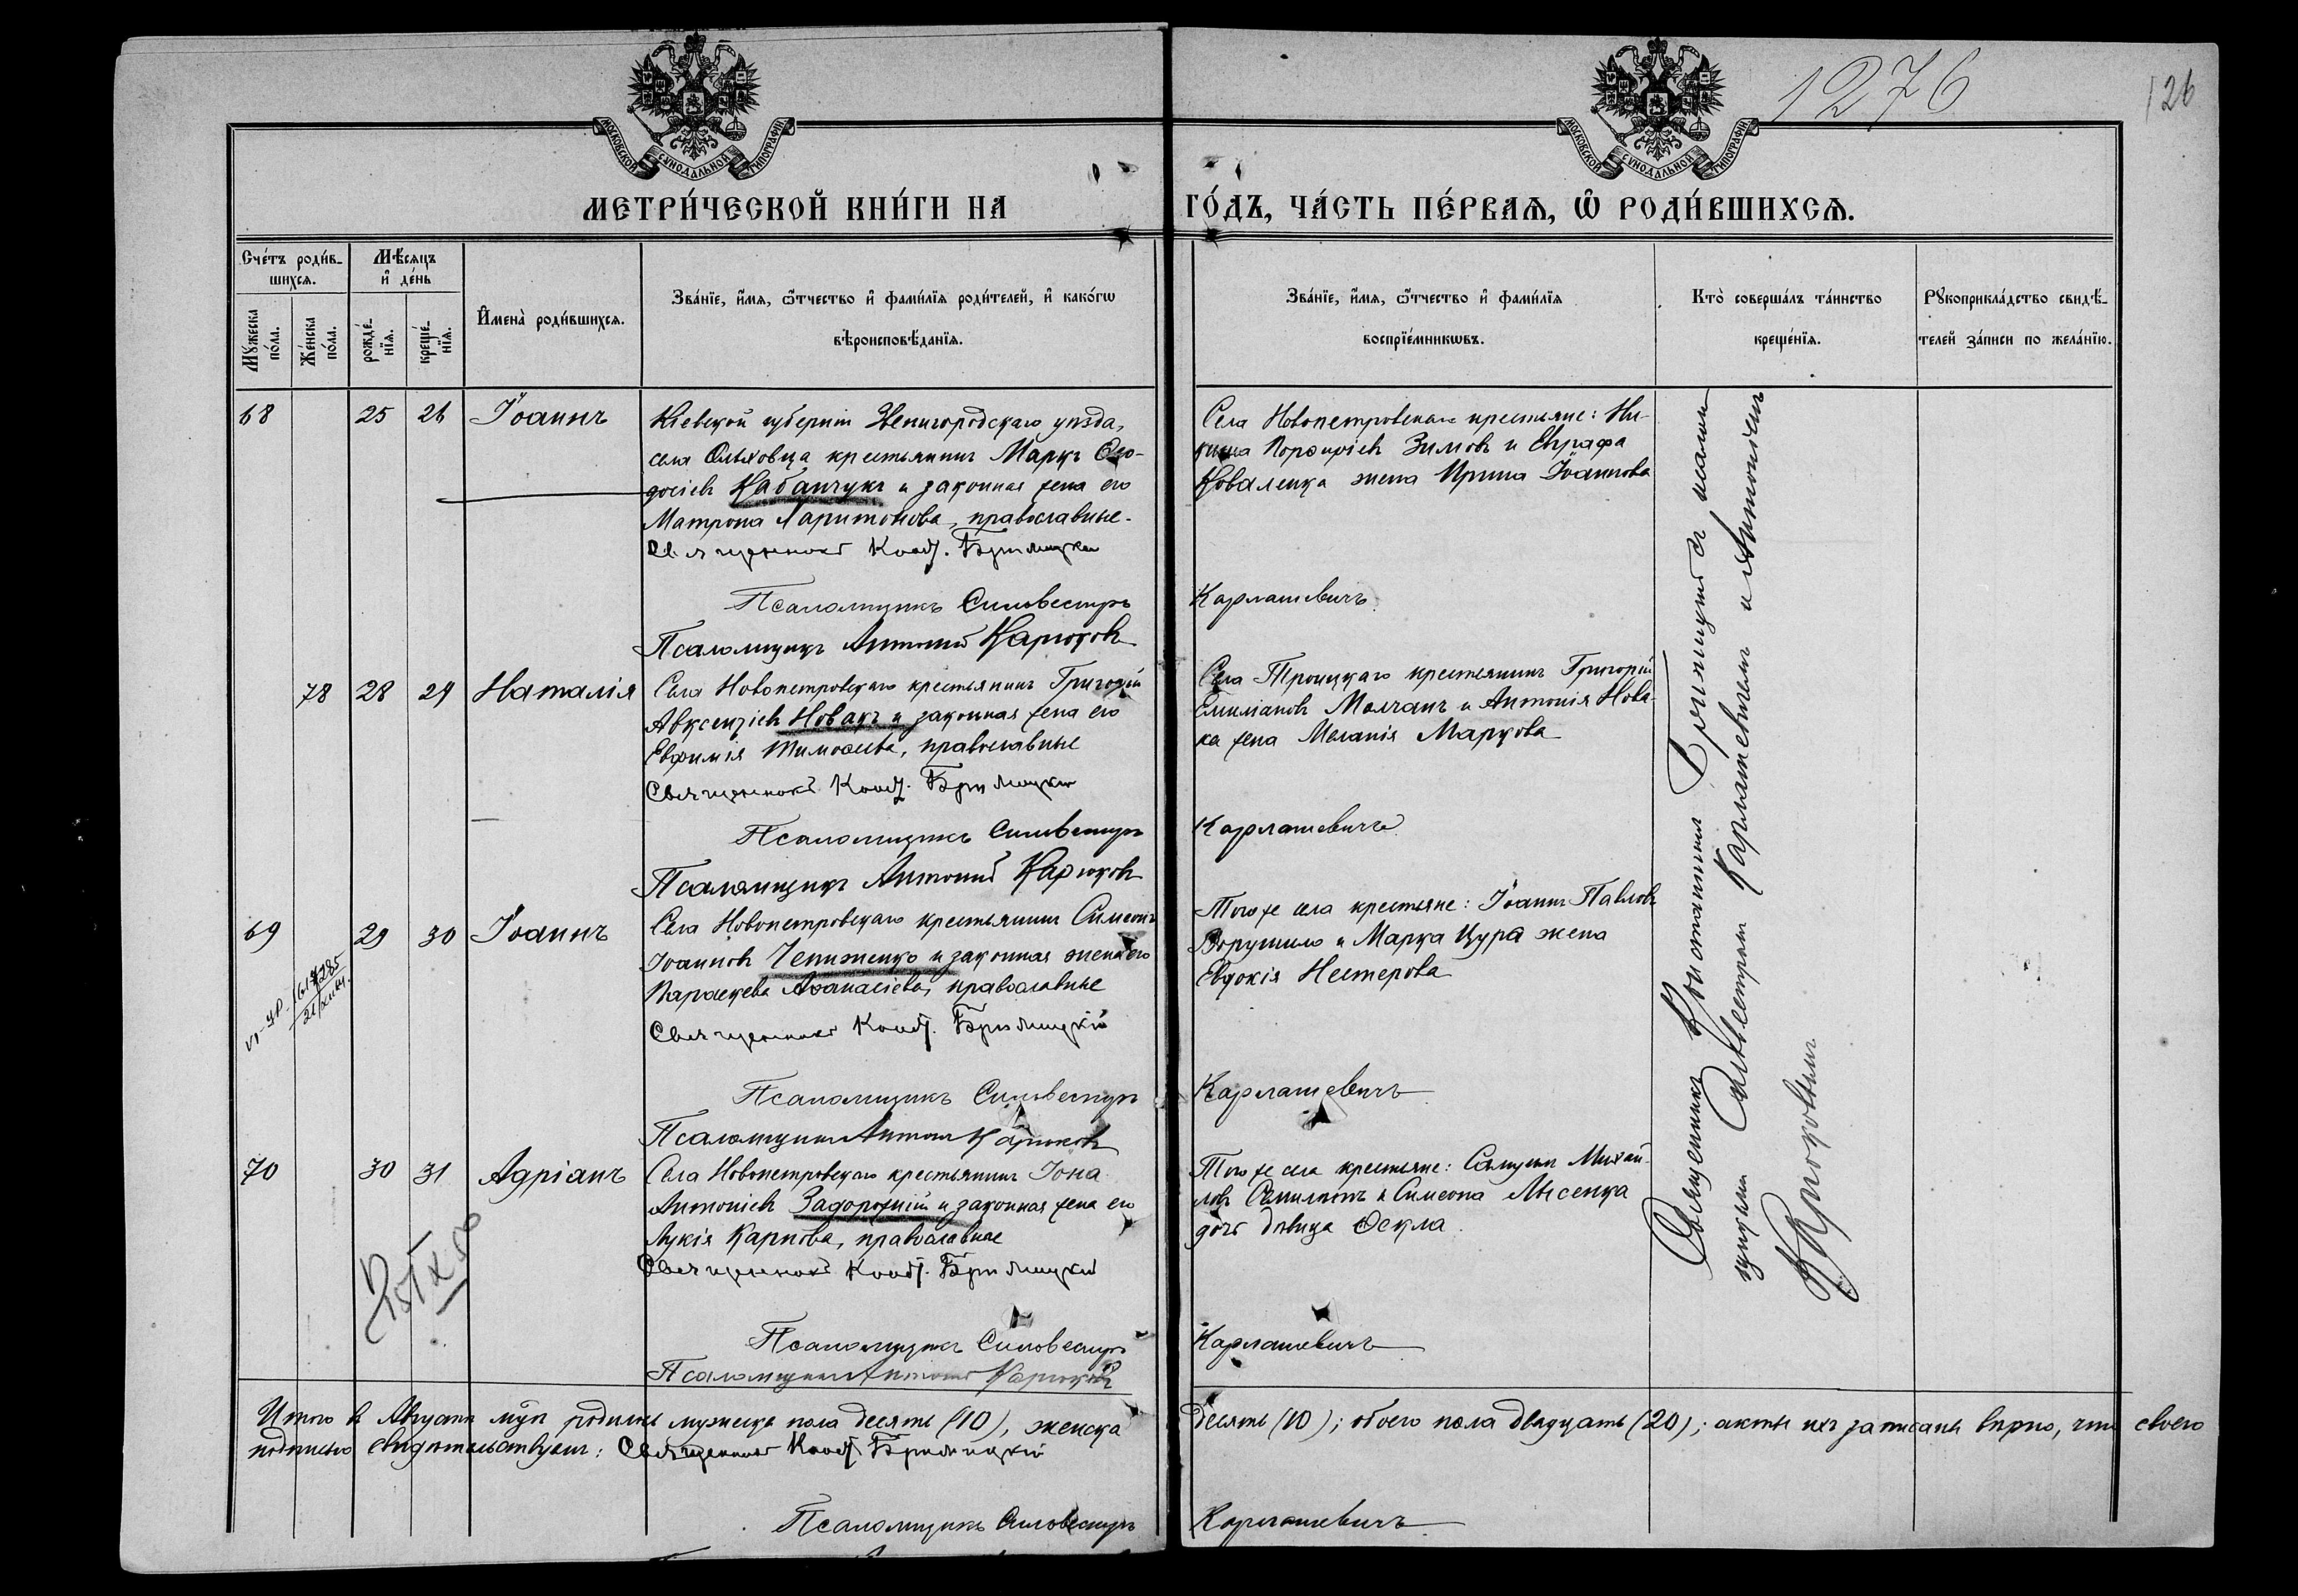 1276
126
МОСКОВСКОЙ СѴНОДАЛЬНОЙ ТИПОГРАФІИ
МОСКОВСКОЙ СѴНОДАЛЬНОЙ ТИПОГРАФІИ
МЕТРИ́ЧЕСКОЙ КНИ́ГИ НА
ГО́ДЪ, ЧА́СТЬ ПЕ́РВАѦ, Ѡ҆ РОДИ́ВШИХСѦ.
Сче́тъ роди́в-
шихсѧ.
Мꙋ́жеска по́ла.
Же́нска по́ла.
Мѣ́сѧцъ
и҆ де́нь
рожде́-
нїѧ.
креще́-
нїѧ.
И҆мена̀ роди́вшихсѧ.
Зва́нїе, и҆́мѧ, ѻ҆́тчество и҆ фами́лїѧ роди́телей, и҆ како́гѡ
вѣроисповѣ́данїѧ.
Зва́нїе, и҆́мѧ, ѻ҆́тчество и҆ фами́лїѧ
воспрїе́мникѡвъ.
Кто̀ соверша́лъ та́инство
креще́нїѧ.
Рꙋкоприкла́дство свидѣ́-
телей за́писи по жела́нїю.
68 25 26 Іоаннъ
Кіевской губерніи Звенигородскаго уѣзда,
села Ольховца крестьянинъ Маркъ Ѳео-
досіевъ Кабанчукъ и законная жена его
Матрона Харитонова, православные.
Священникъ Конст. Бржозицкій
Псаломщикъ Сильвестръ
Псаломщикъ Антоній Карюковъ
Села Новопетровскаго крестьяне: Ни-
кита Порфиріевъ Зимовъ и Евграфа
Коваленка жена Ирина Іоаннова
Карлашевичъ
78 28 29 Наталія
Села Новопетровскаго крестьянинъ Григорій
Авксентіевъ Новакъ и законная жена его
Евфимія Тимоѳеева, православные
Священникъ Конст. Бржозицкій
Псаломщикъ Сильвестръ
Псаломщикъ Антоній Карюковъ
Села Троицкаго крестьянинъ Григорій
Емиліановъ Молчанъ и Антонія Нова-
ка жена Меланія Маркова
Карлашевичъ
69 29 30 Іоаннъ
Села Новопетровскаго крестьянинъ Симеонъ
Іоанновъ Чепиженко и законная жена его
Параскева Аѳанасіева, православные
Священникъ Конст. Бржозицкій
Псаломщикъ Сильвестръ
Псаломщикъ Антоній Карюковъ
Того же села крестьяне: Іоаннъ Павловъ
Ворушило и Марка Цура жена
Евдокія Нестерова
Карлашевичъ
70 30 31 Адріанъ
Села Новопетровскаго крестьянинъ Іона
Антоніевъ Задорожній и законная жена его
Лукія Карпова, православные
Священникъ Конст. Бржозицкій
Псаломщикъ Сильвестръ
Псаломщикъ Антоній Карюковъ
Того же села крестьяне: Самуилъ Михай-
ловъ и Симеона Лысенка
дочь дѣвица Ѳекла.
Карлашевичъ
Священникъ Константинъ Бржозицкій съ псалом-
щиками Сильвестромъ Карлашевичемъ и Антоніемъ
Карюковымъ
Итого въ Августѣ м̃цѣ родилось мужеска пола десять (10), женска
десять (10); обоего пола двадцать (20); акты ихъ записаны вѣрно, что своею
подписью свидѣтельствуемъ: Священникъ Конст. Бржозицкій
Псаломщикъ Сильвестръ
Карлашевичъ